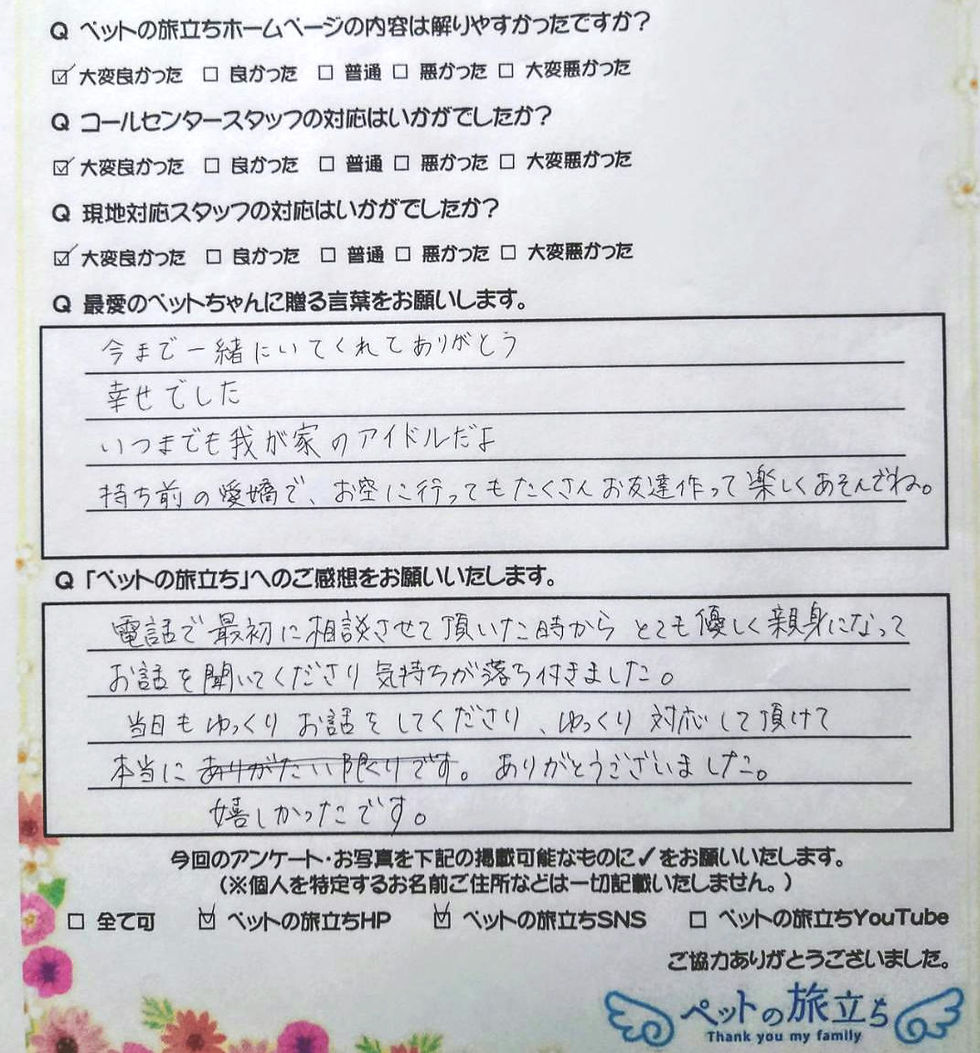 Q ペットの旅立ちホームページの内容は解りやすかったですか?
☑ 大変良かった □ 良かった □ 普通 □ 悪かった □ 大変悪かった
Q コールセンタースタッフの対応はいかがでしたか?
☑ 大変良かった □ 良かった □ 普通 □ 悪かった □ 大変悪かった
Q 現地対応スタッフの対応はいかがでしたか?
☑ 大変良かった □ 良かった □ 普通 □ 悪かった □ 大変悪かった
Q 最愛のペットちゃんに贈る言葉をお願いします。
今まで一緒にいてくれてありがとう
幸せでした
いつまでも我が家のアイドルだよ
持ち前の愛嬌で、お空に行ってもたくさんお友達作って楽しくあそんでね。
Q 「ペットの旅立ち」へのご感想をお願いいたします。
電話で最初に相談させて頂いた時からとても優しく親身になって
お話を聞いてくださり気持ちが落ち付きました。
当日もゆっくりお話をしてくださり、ゆっくり対応して頂けて
本当にありがたい限りです。ありがとうございました。
嬉しかったです。
今回のアンケート・お写真を下記の掲載可能なものに✓をお願いいたします。
(※個人を特定するお名前ご住所などは一切記載いたしません。)
□ 全て可 ☑ ペットの旅立ちHP ☑ ペットの旅立ちSNS □ ペットの旅立ちYouTube
ご協力ありがとうございました。
ペットの旅立ち
Thank you my family